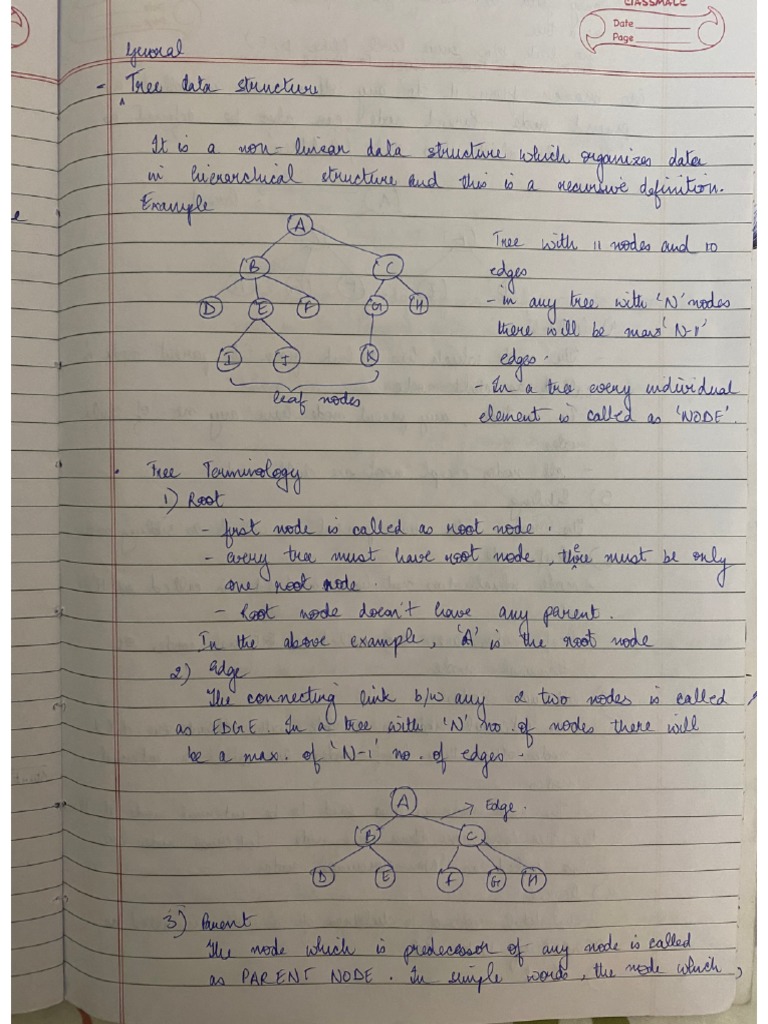 CLASSMATE
Date
Page
General
- Tree data structure
It is a non-linear data structure which organizes data
in hierarchical structure and this is a recursive definition.
Example
A
B C
D E F G H
I J K
leaf nodes
Tree with 11 nodes and 10
edges
- in any tree with 'N' nodes
there will be max 'N-1'
edges.
- In a tree every individual
element is called as 'NODE'.
Tree Terminology
1) Root
- first node is called as root node.
- every tree must have root node, there must be only
one root node.
- Root node doesn't have any parent.
In the above example, 'A' is the root node
2) Edge
The connecting link b/w any 2 two nodes is called
as EDGE. In a tree with 'N' no. of nodes there will
be a max. of 'N-1' no. of edges.
A
→ Edge.
B C
D E F G H
3) Parent
The node which is predecessor of any node is called
as PARENT NODE. In simple words, the node which,